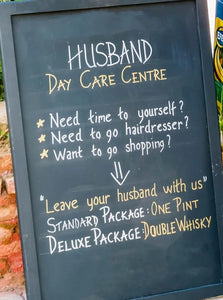 HUSBAND
DAY CARE CENTRE
★ Need time to yourself?
★ Need to go hairdresser?
★ Want to go shopping?
"Leave your husband with us"
STANDARD PACKAGE: ONE PINT
DELUXE PACKAGE: DOUBLE WHISKY